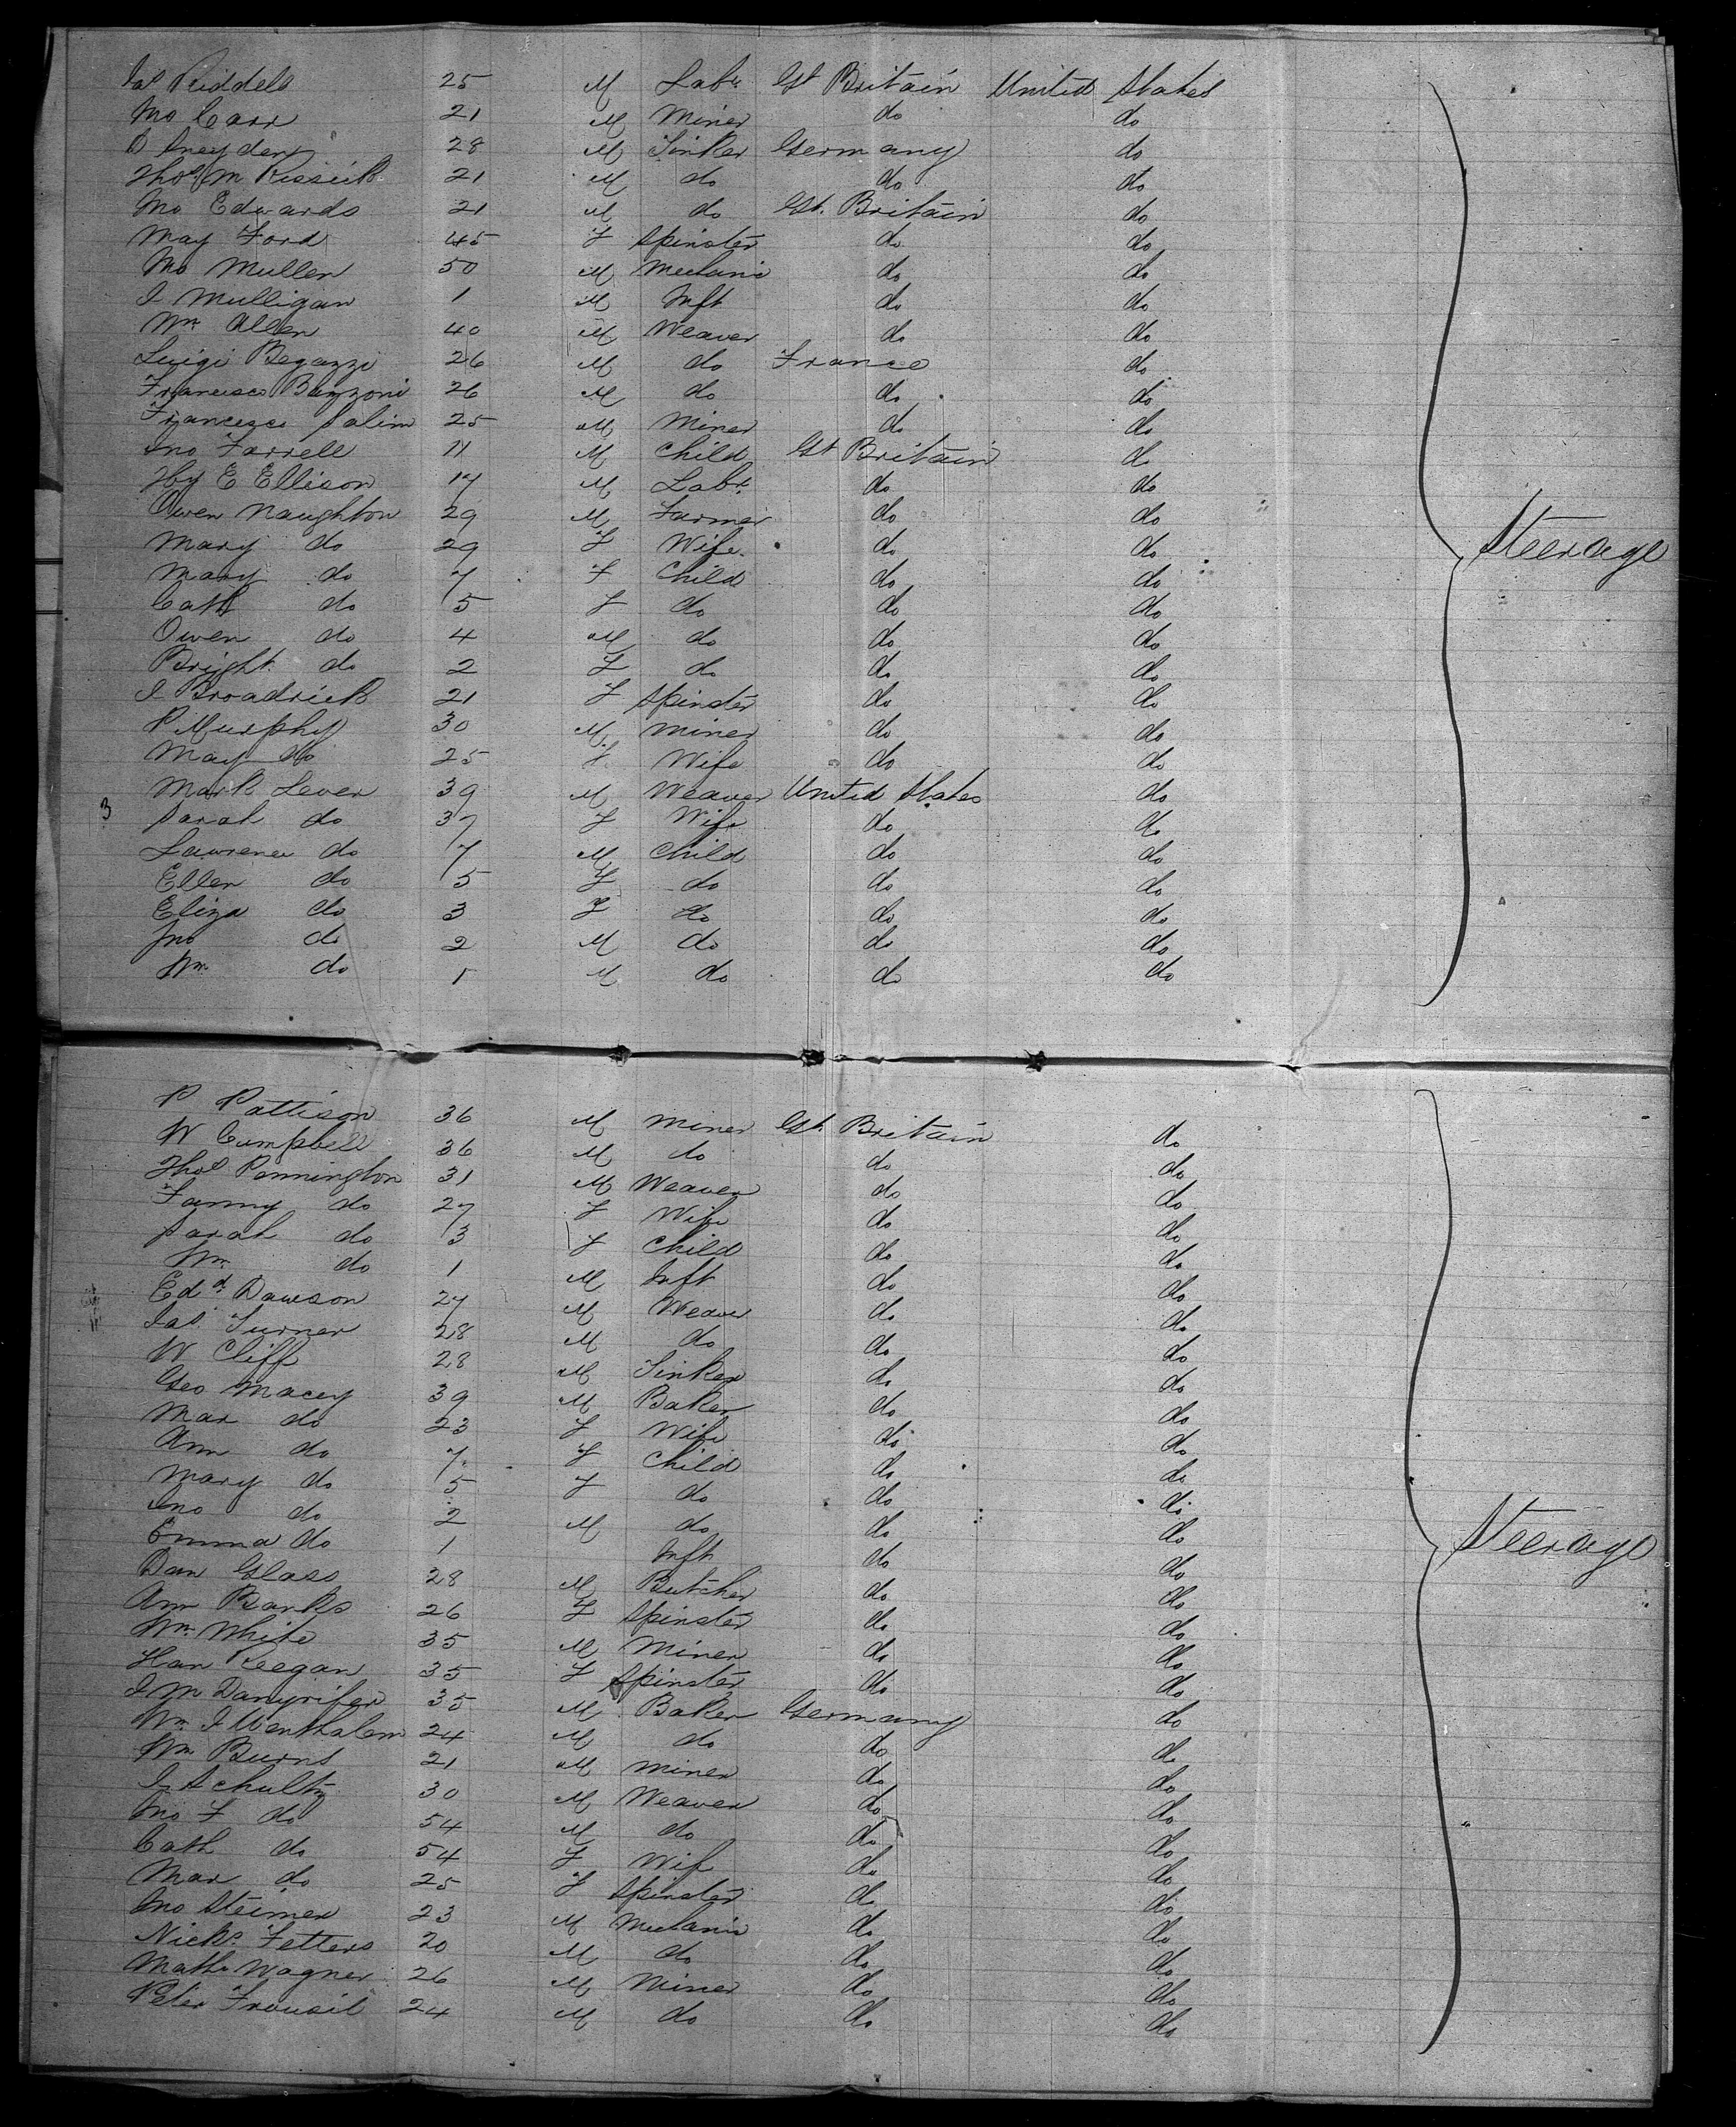 Jas Riddell 25 M Labr Gt Britain United States
Jno Carr 21 M Miner do do
D Sneyders 28 M Tinker Germany do
Thos M Kissick 21 M do do do
Jno Edwards 21 M do Gt. Britain do
May Ford 45 F Spinster do do
Jno Mullen 50 M Mechanic do do
J Mulligan 1 M Inft do do
Wm Allen 40 M Weaver do do
Luigi Begazzi 26 M do France do
Francisco Banzoni 26 M do do do
Francesco Salim 25 M Miner do do
Jno Farrell 11 M Child Gt Britain do
Hy E Ellison 17 M Labr. do do
Owen Naughton 29 M Farmer do do
Mary do 29 F Wife do do
Steerage
Mary do 7 F Child do do
Cath do 5 F do do do
Owen do 4 M do do do
Bright. do 2 F do do do
J Broadrick 21 F Spinster do do
P Murphy 30 M Miner do do
May do 25 F Wife do do
Mark Lever 39 M Weaver United States do
3 Sarah do 37 F Wife do do
Lawrence do 7 M Child do do
Ellen do 5 F do do do
Eliza do 3 F do do do
Jno do 2 M do do do
Wm do 1 M do do do
P Pattison 36 M Miner Gt. Britain do
W Campbell 36 M do do do
Thos Pennington 31 M Weaver do do
Fanny do 27 F Wife do do
Sarah do 3 F Child do do
Wm do 1 M Inft do do
Edd. Dawson 27 M Weaver do do
Jas. Turner 28 M do do do
W Cliff 28 M Tinker do do
Geo Macey 39 M Baker do do
Mar do 23 F Wife do do
Ann do 7 F Child do do
Mary do 5 F do do do
Jno do 2 M do do do
Steerage
Emma do 1 Inft do do
Dan Glass 28 M Butcher do do
Ann Banks 26 F Spinster do do
Wm White 35 M Miner do do
Han Keegan 35 F Spinster do do
J M 35 M Baker Germany do
Wm J 24 M do do do
Wm Burns 21 M Miner do do
J Schultz 30 M Weaver do do
Jno F do 54 M do do do
Cath do 54 F Wif do do
Mar do 25 F Spinster do do
Jno Steimer 23 M Mechanic do do
Nicks. Fetters 20 M do do do
Math Wagner 26 M Miner do do
Peter Frousil 24 M do do do